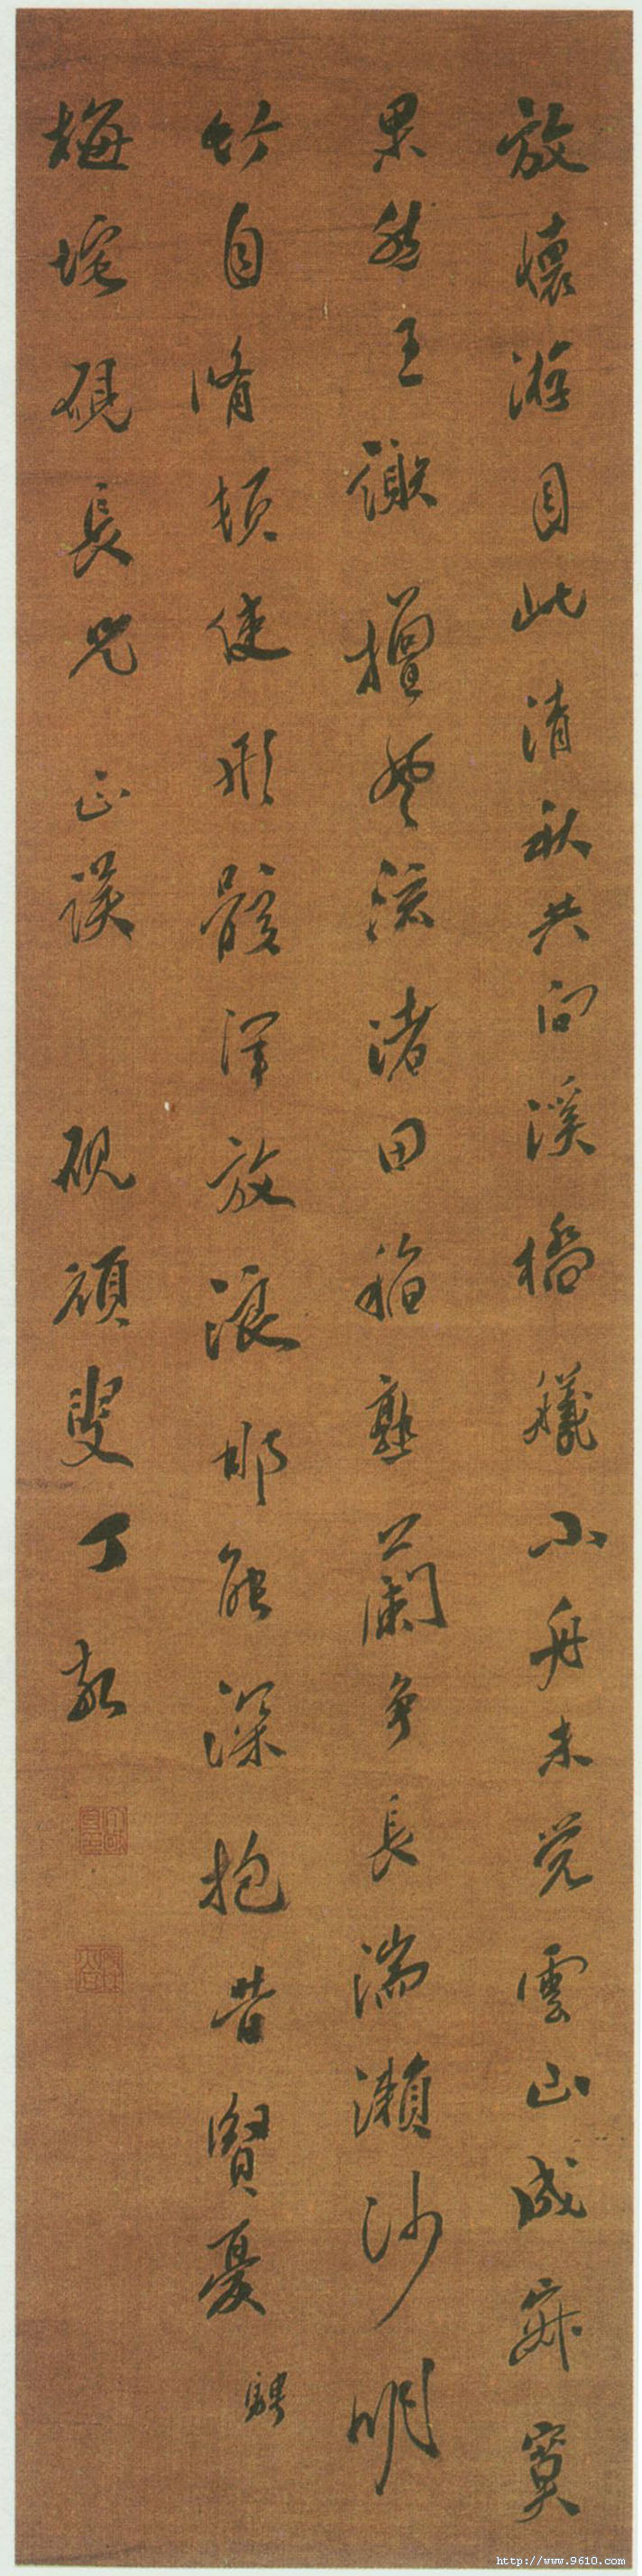 放懷游目此清秋共向溪橋艤小舟未覺雲山成寂寞
果然王謝擅風流渚田稻熟蘭争長湍瀨沙明
竹自脩頓使形骸渾放浪那能深抱昔賢憂 騁
梅垞硯長兄 正誤 硯頑叟丁敬
http://www.9610.com